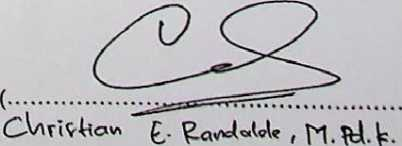 (....................................................
Christian E. Randalele, M.Pd.K.